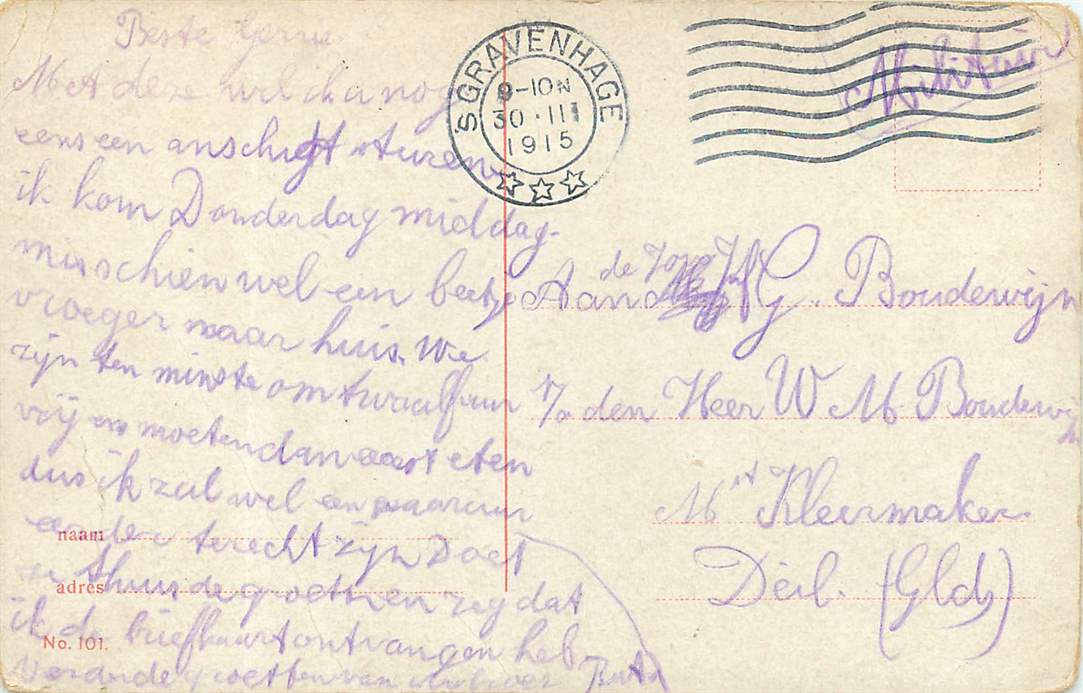 Beste Gerrie
Met deze wil ik u nog
eens een anschigt sturen
ik kom Donderdag middag
misschien wel een beetje
vroeger naar huis. We
zijn ten minste om twaalf uur
vrij en moeten dan eerst eten
dus ik zal wel een paar uur
eerder terecht zijn Doet
ze thuis de groeten en zeg dat
ik de briefkaart ontvangen heb
Verder de groetten van
naam
adres
No. 101.
'S GRAVENHAGE
9-10 N
30 · III
1915
Militair
Aan de Jong H G. Boudewijn
p/a den Heer W M Boudewijn
Mr Kleermaker
Deil. (Gld)